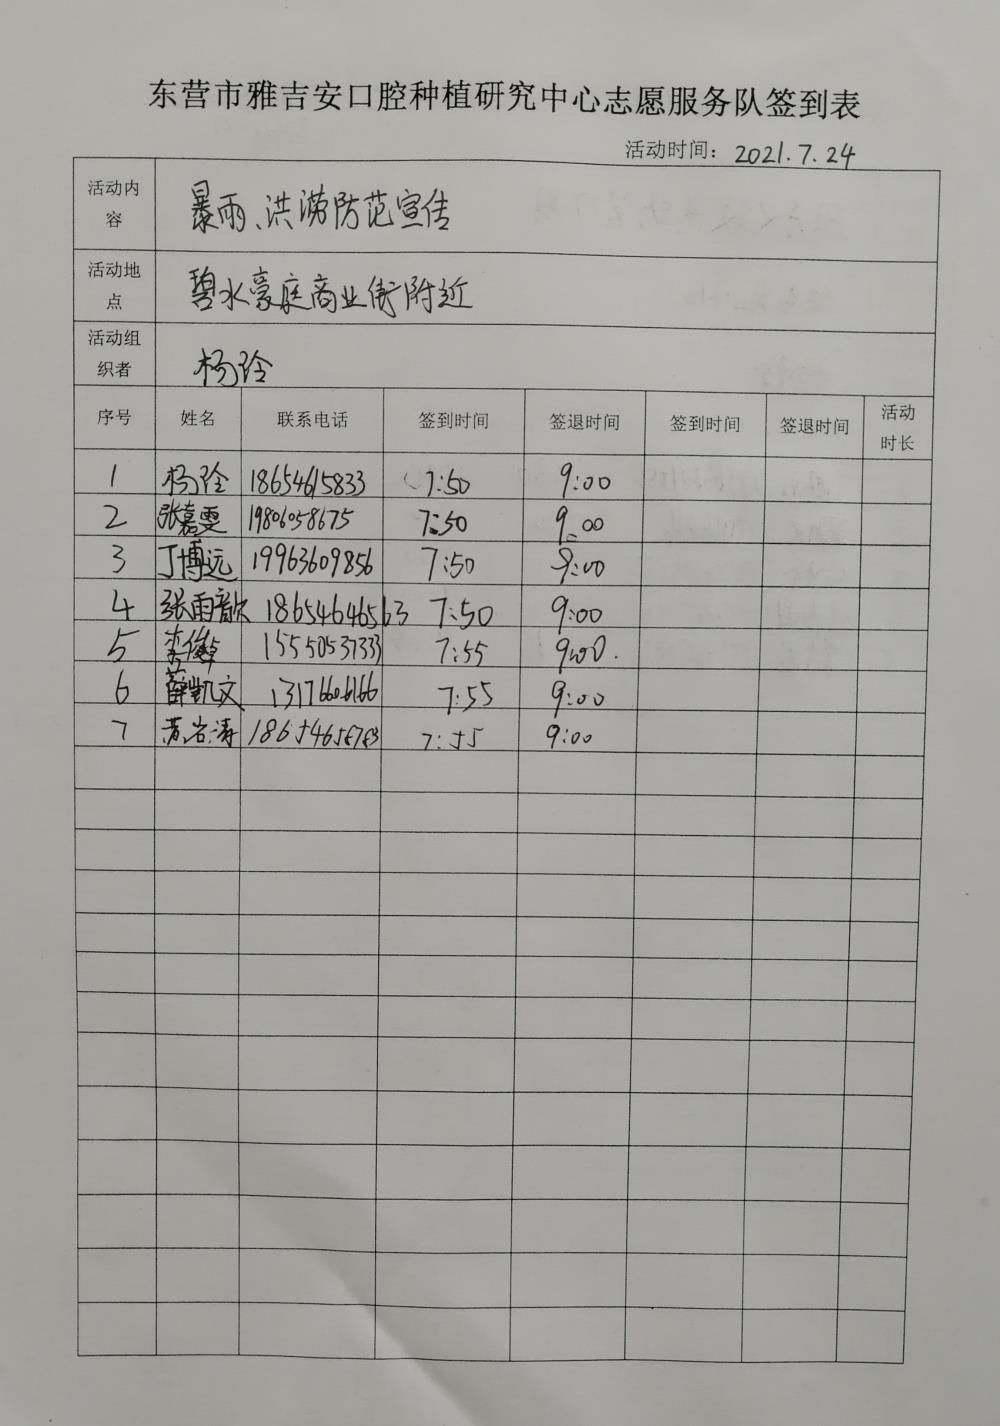 东营市雅吉安口腔种植研究中心志愿服务队签到表
活动时间：2021.7.24
活动内容 暴雨、洪涝防范宣传
活动地点 碧水豪庭商业街附近
活动组织者 杨玲
序号 姓名 联系电话 签到时间 签退时间 签到时间 签退时间 活动时长
1 杨玲 18654615833 7:50 9:00
2 张嘉雯 19806058675 7:50 9:00
3 丁博远 19963609856 7:50 9:00
4 张雨歆 18654646563 7:50 9:00
5 李俊 15550537333 7:55 9:00.
6 薛凯文 13176606166 7:55 9:00
7 黄岩涛 18654656763 7:55 9:00